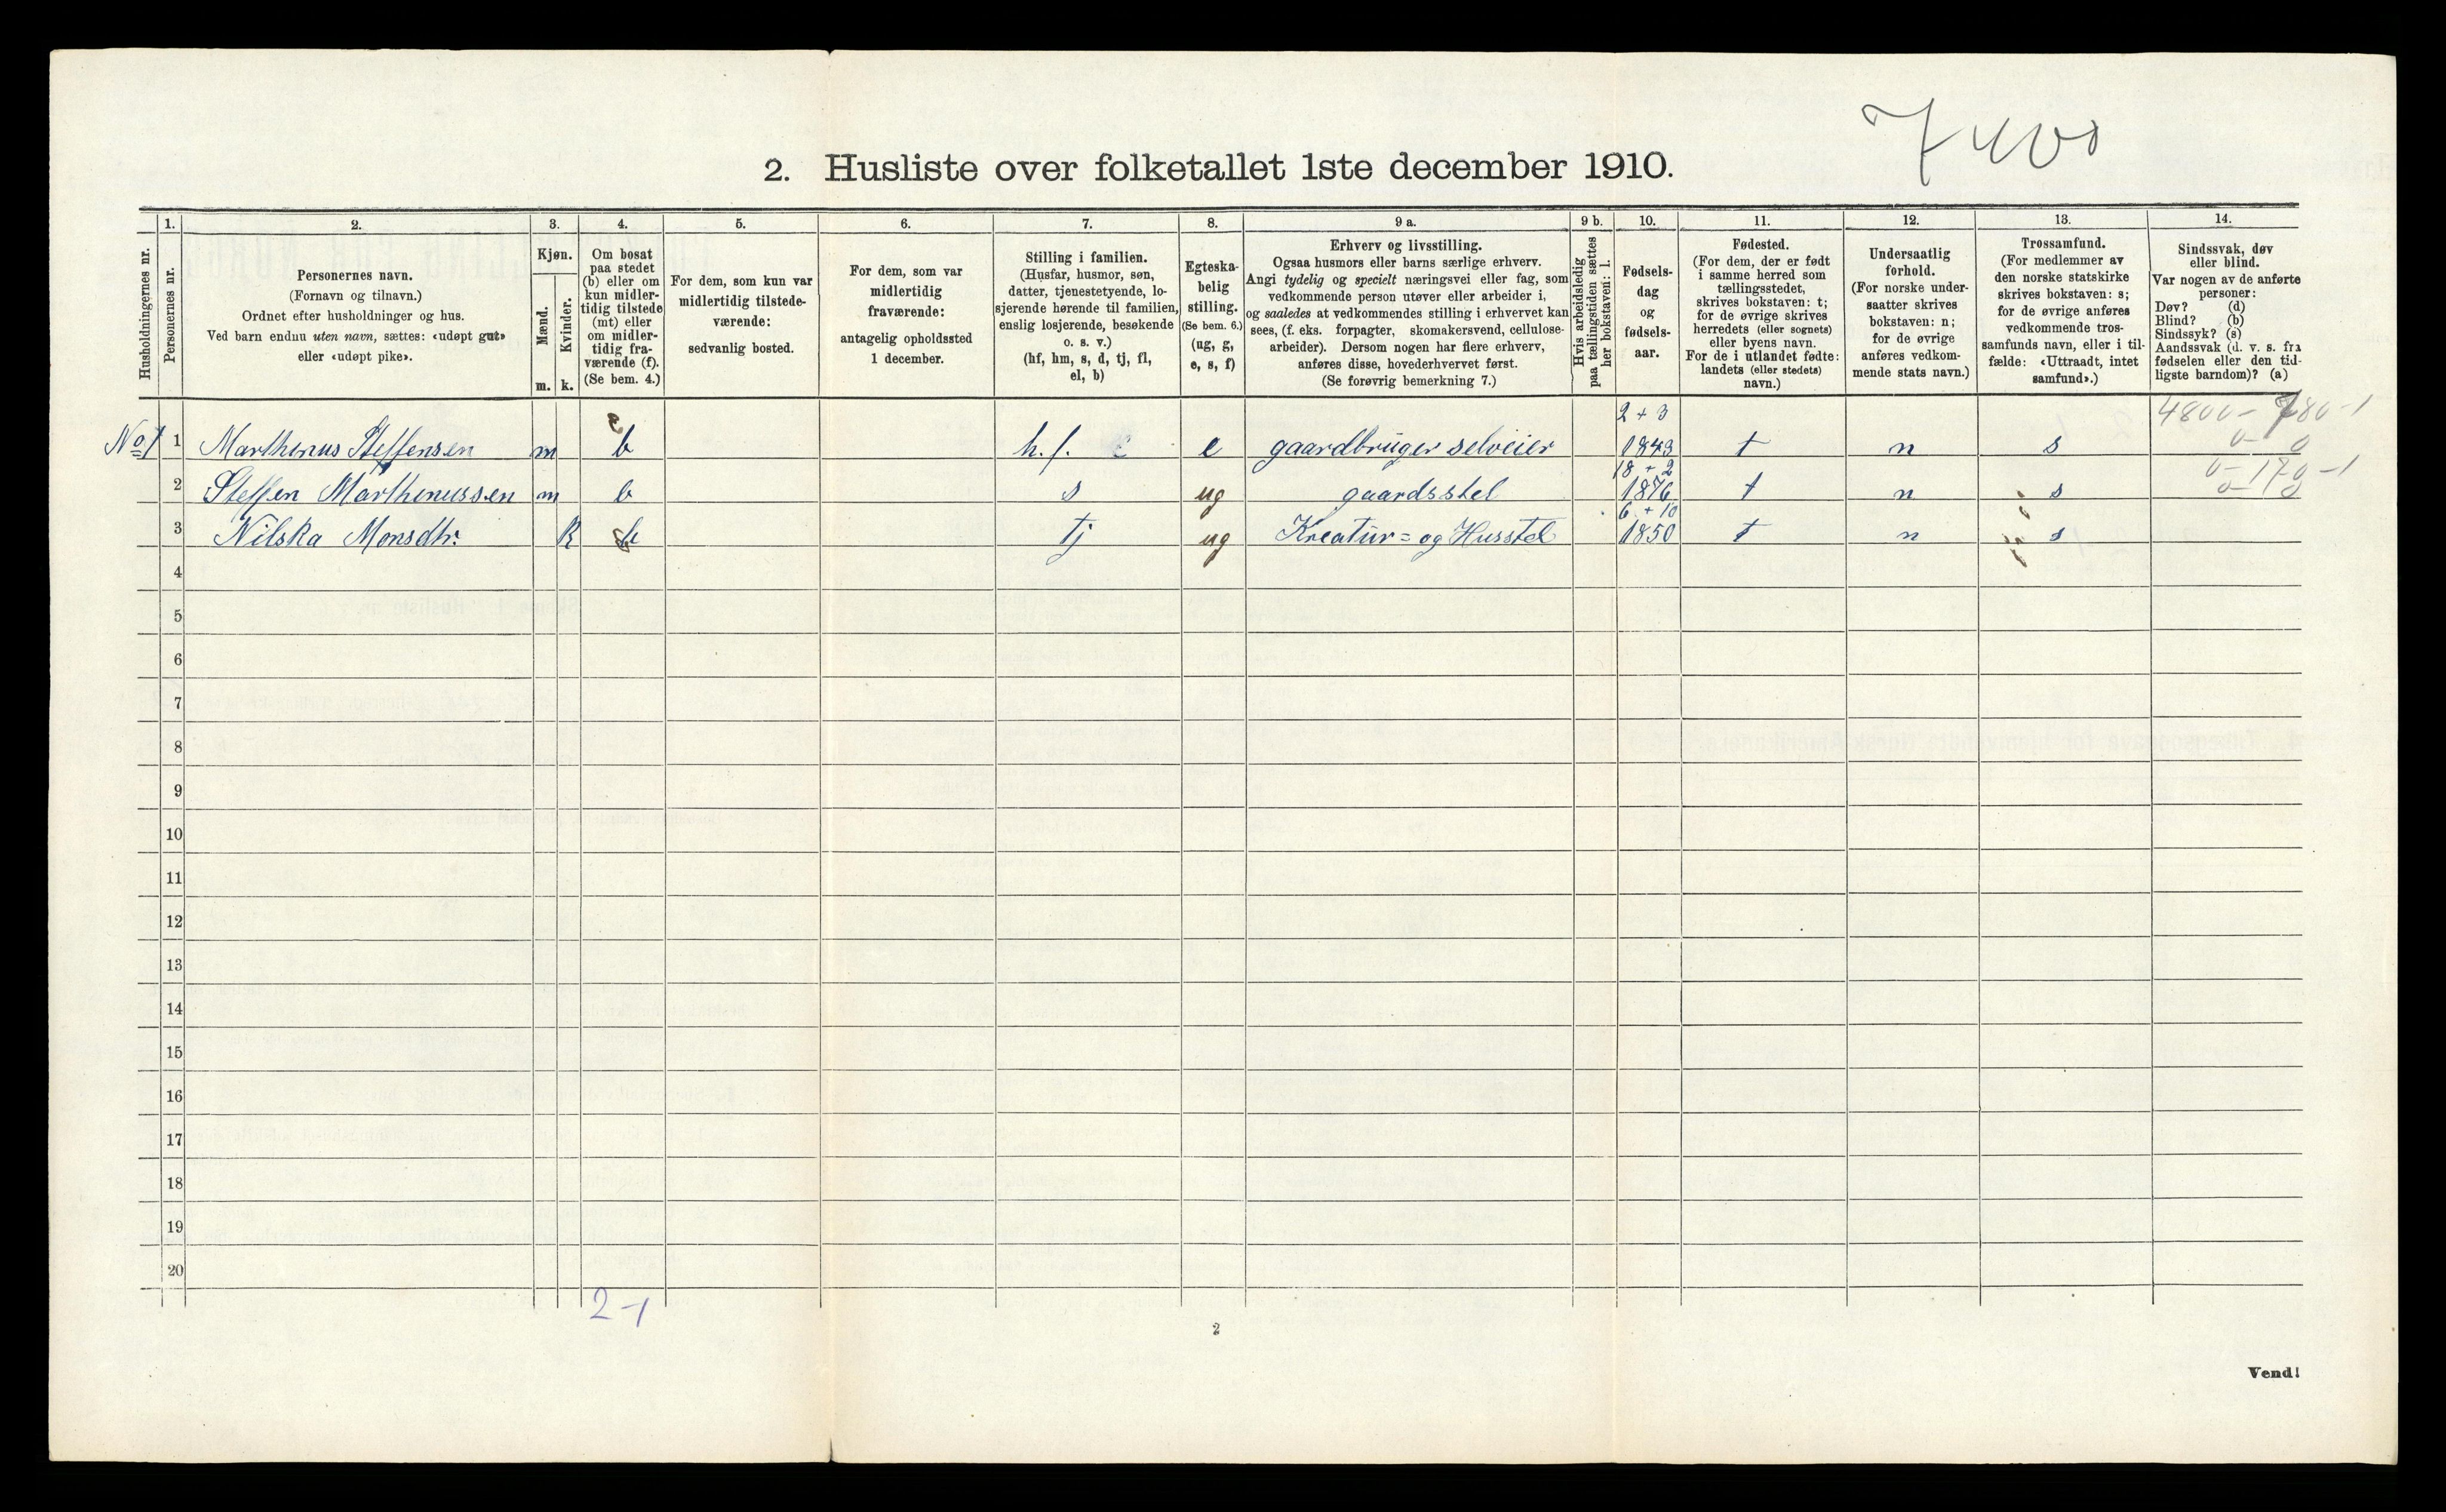 7400
2. Husliste over folketallet 1ste december 1910.
Husholdningernes nr.
1.
Personernes nr.
2.
Personernes navn.
(Fornavn og tilnavn.)
Ordnet efter husholdninger og hus.
Ved barn endnu uten navn, sættes: «udøpt gut»
eller «udøpt pike».
3.
Kjøn.
Mænd.
Kvinder.
m. k.
4.
Om bosat
paa stedet
(b) eller om
kun midler-
tidig tilstede
(mt) eller
om midler-
tidig fra-
værende (f).
(Se bem. 4.)
5.
For dem, som kun var
midlertidig tilstede-
værende:
sedvanlig bosted.
6.
For dem, som var
midlertidig
fraværende:
antagelig opholdssted
1 december.
7.
Stilling i familien.
(Husfar, husmor, søn,
datter, tjenestetyende, lo-
sjerende hørende til familien,
enslig losjerende, besøkende
o. s. v.)
(hf, hm, s, d, tj, fl,
el, b)
8.
Egteska-
belig
stilling.
(Se bem. 6.)
(ug, g,
e, s, f)
9 a.
Erhverv og livsstilling.
Ogsaa husmors eller barns særlige erhverv.
Angi tydelig og specielt næringsvei eller fag, som
vedkommende person utøver eller arbeider i,
og saaledes at vedkommendes stilling i erhvervet kan
sees, (f. eks. forpagter, skomakersvend, cellulose-
arbeider). Dersom nogen har flere erhverv,
anføres disse, hovederhvervet først.
(Se forøvrig bemerkning 7.)
9 b.
Hvis arbeidsledig
paa tællingstiden sættes
her bokstaven: l.
10.
Fødsels-
dag
og
fødsels-
aar.
11.
Fødested.
(For dem, der er født
i samme herred som
tællingsstedet,
skrives bokstaven: t;
for de øvrige skrives
herredets (eller sognets)
eller byens navn.
For de i utlandet fødte:
landets (eller stedets)
navn.)
12.
Undersaatlig
forhold.
(For norske under-
saatter skrives
bokstaven: n;
for de øvrige
anføres vedkom-
mende stats navn.)
13.
Trossamfund.
(For medlemmer av
den norske statskirke
skrives bokstaven: s;
for de øvrige anføres
vedkommende tros-
samfunds navn, eller i til-
fælde: «Uttraadt, intet
samfund».)
14.
Sindssvak, døv
eller blind.
Var nogen av de anførte
personer:
Døv? (d)
Blind? (b)
Sindssyk? (s)
Aandssvak (d. v. s. fra
fødselen eller den tid-
ligste barndom)? (a)
No 1 1 Marthinus Steffensen m b h.f. e gaardbruger selveier 2+3 1843 t n s
2 Steffen Marthinussen m b s ug gaardsstel 18+2 1876 t n s
3 Nilska Monsdtr. k b tj ug Kreatur= og Husstel 6+10 1850 t n s
4
5
6
7
8
9
10
11
12
13
14
15
16
17
18
19
20
2-1
2
Vend!